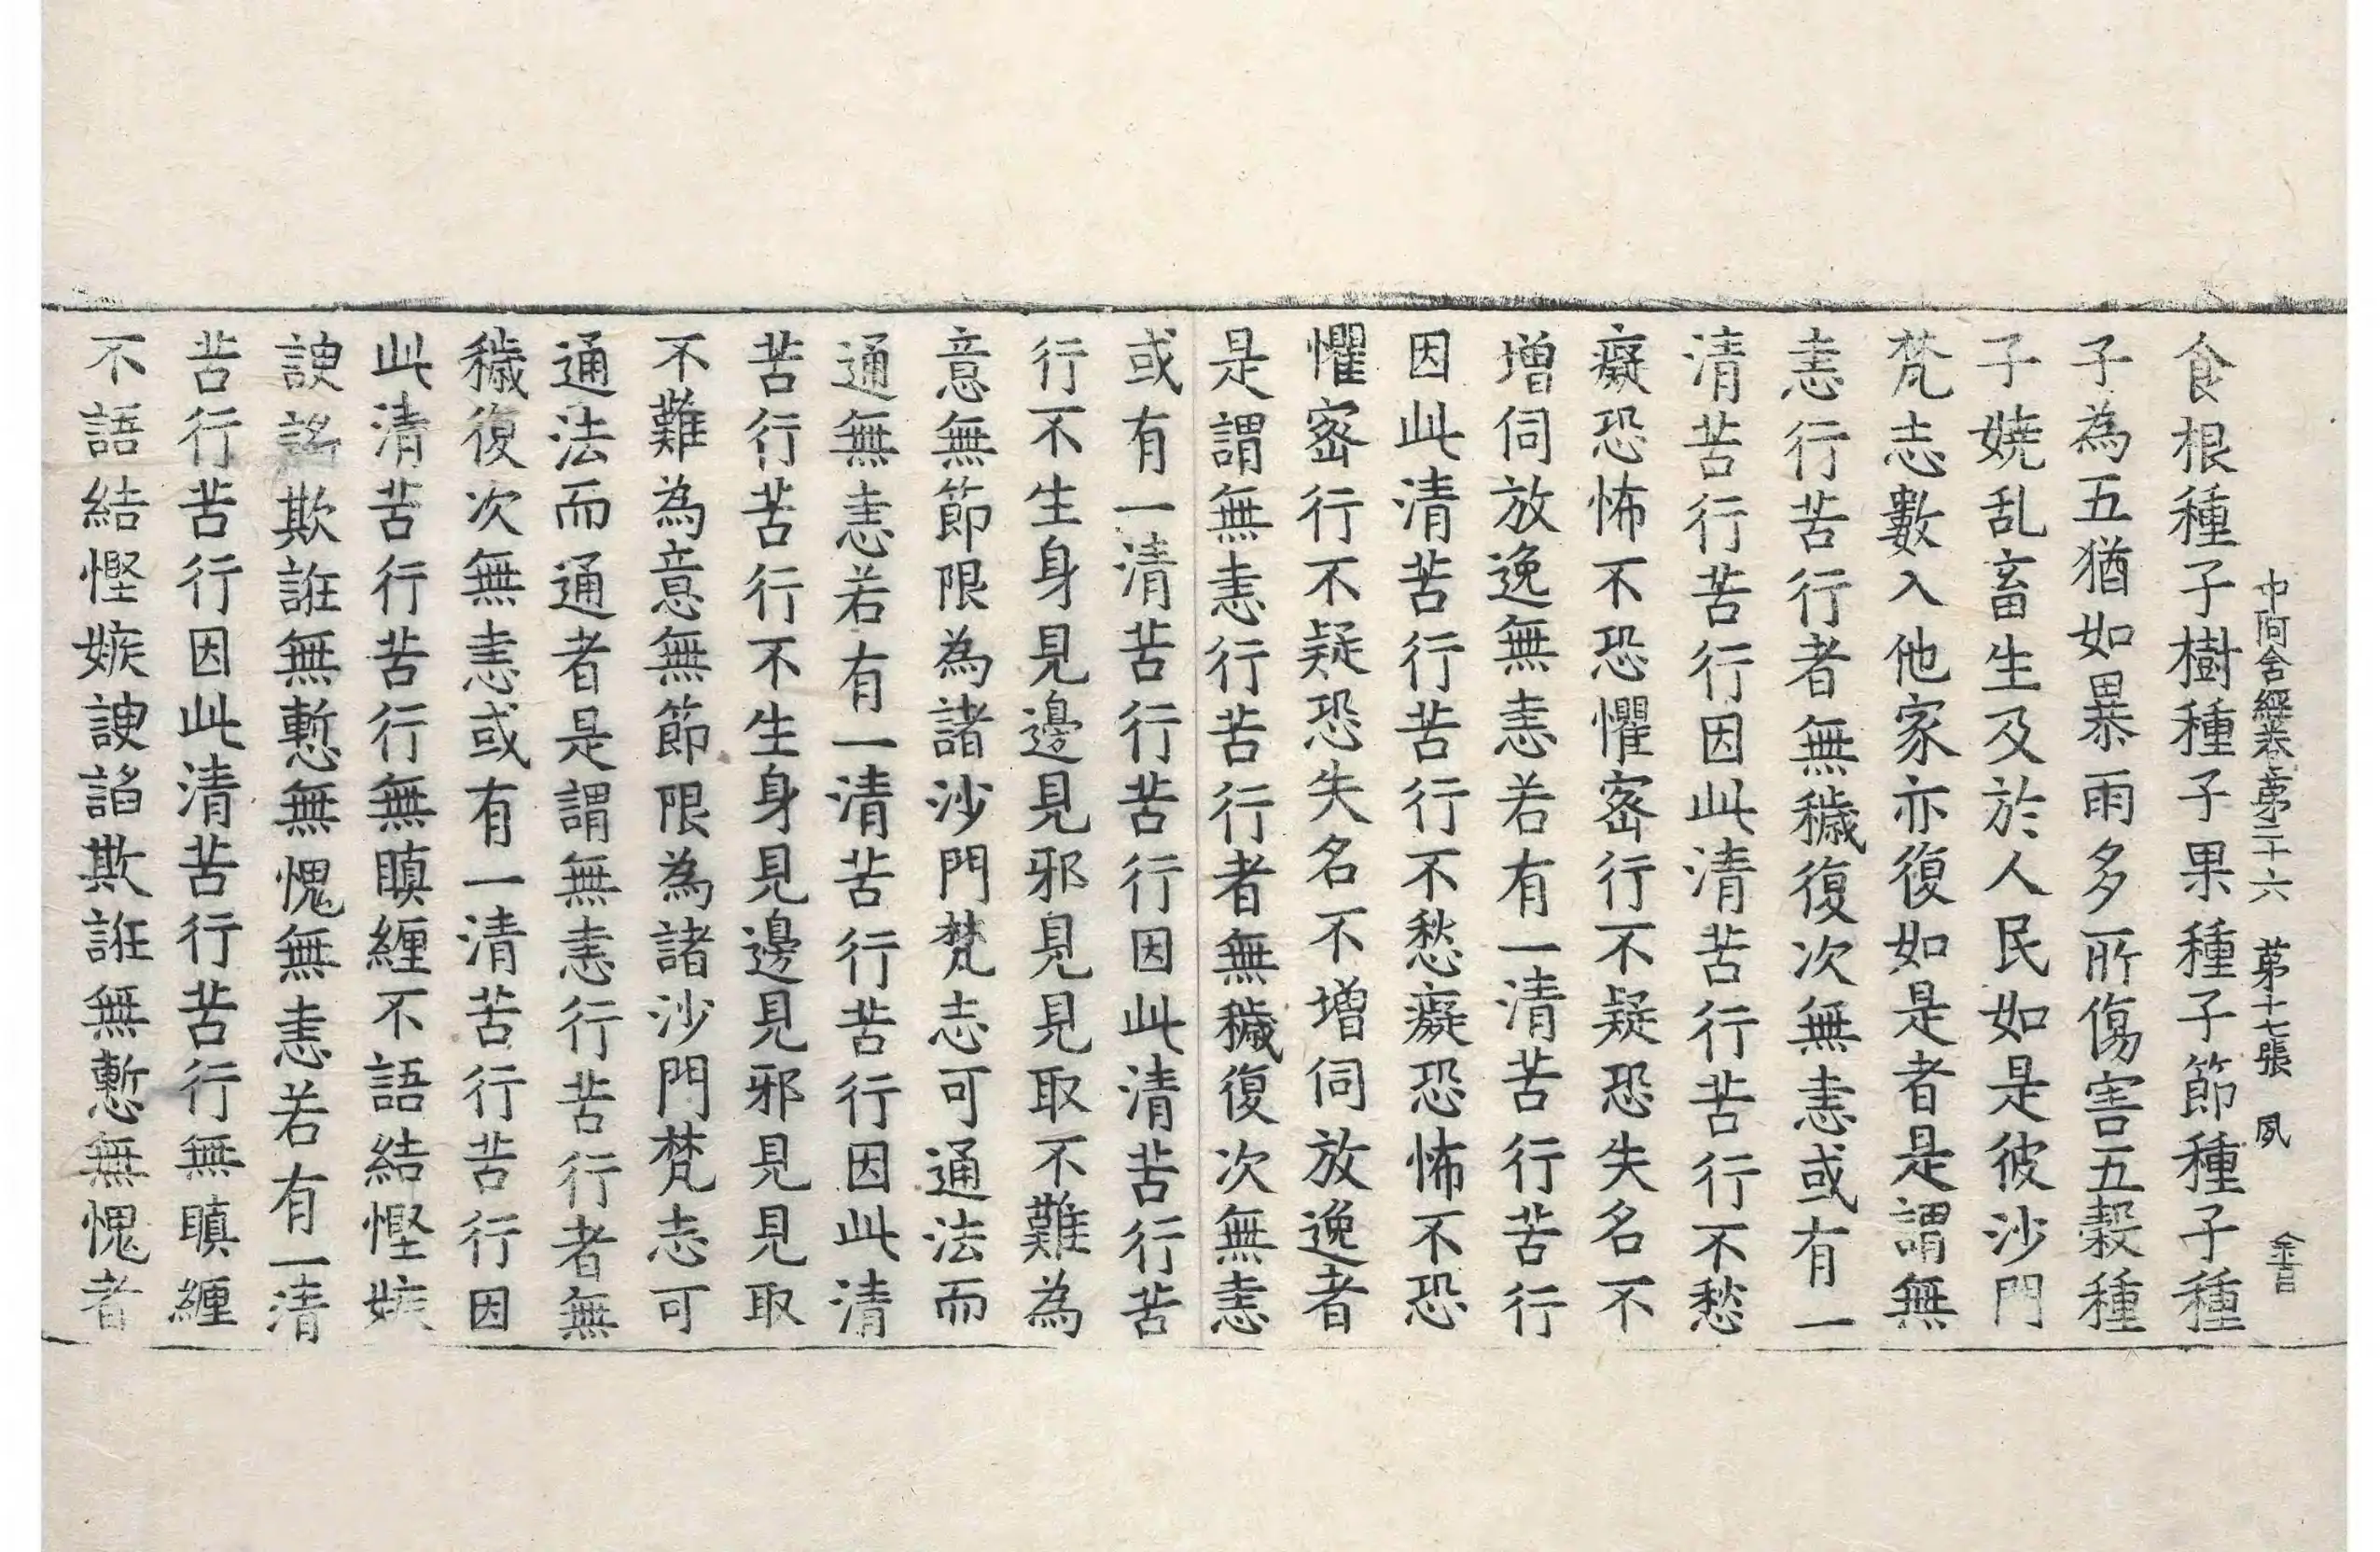 中阿含經卷第二十六　第十七張　夙
食根種子樹種子果種子節種子種
子為五猶如暴雨多所傷害五穀種
子嬈乱畜生及於人民如是彼沙門
梵志數入他家亦復如是者是謂無
恚行苦行者無穢復次無恚或有一
清苦行苦行因此清苦行苦行不愁
癡恐怖不恐懼密行不疑恐失名不
增伺放逸無恚若有一清苦行苦行
因此清苦行苦行不愁癡恐怖不恐
懼密行不疑恐失名不增伺放逸者
是謂無恚行苦行者無穢復次無恚
或有一清苦行苦行因此清苦行苦
行不生身見邊見邪見見取不難為
意無節限為諸沙門梵志可通法而
通無恚若有一清苦行苦行因此清
苦行苦行不生身見邊見邪見見取
不難為意無節限為諸沙門梵志可
通法而通者是謂無恚行苦行者無
穢復次無恚或有一清苦行苦行因
此清苦行苦行無瞋纏不語結慳嫉
諛諂欺誑無慙無愧無恚若有一清
苦行苦行因此清苦行苦行無瞋纏
不語結慳嫉諛諂欺誑無慙無愧者